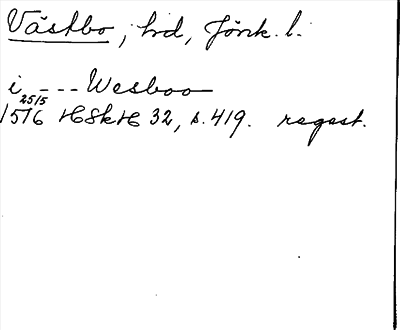 Västbo, hd, Jönk. l.
i - - - Wesboo
25/5
1516 HSkH 32, s. 419. regest.